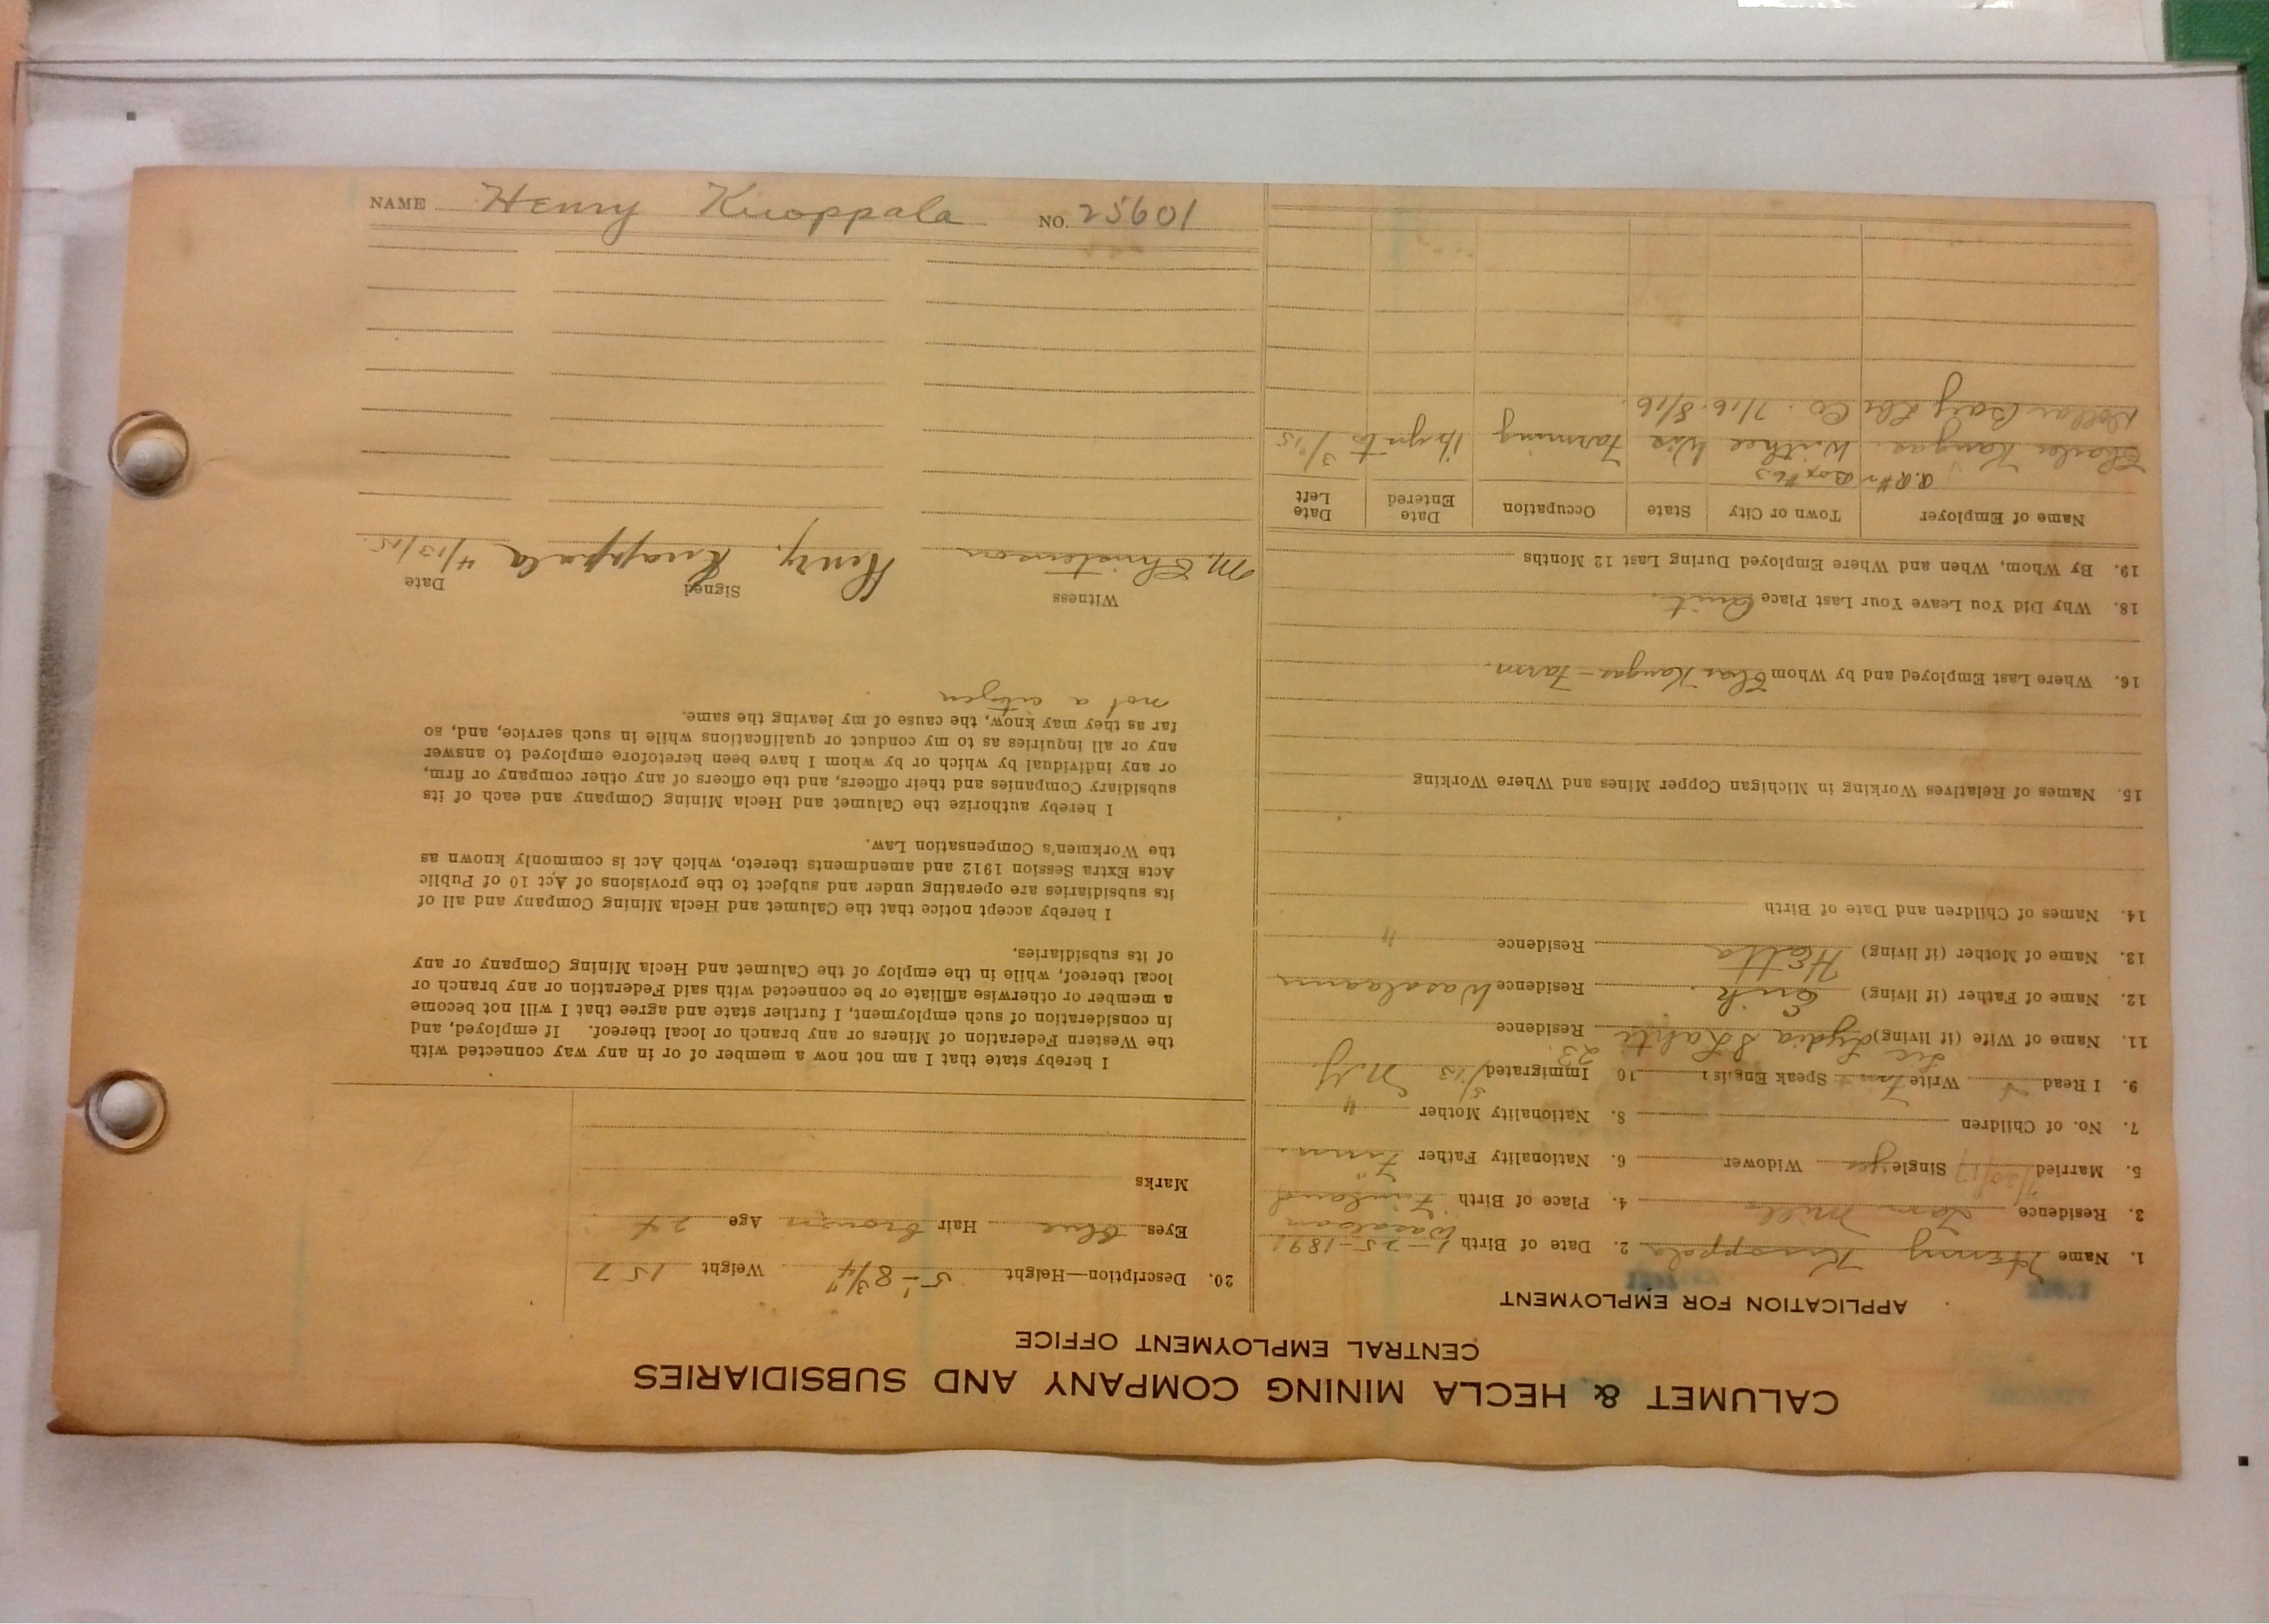 CALUMET & HECLA MINING COMPANY AND SUBSIDIARIES
CENTRAL EMPLOYMENT OFFICE
APPLICATION FOR EMPLOYMENT
1. Name Henry Knoppala 2. Date of Birth 1-25-1891
3. Residence Tam. Mills 4. Place of Birth Wasalaan Finland
5. Married 7/20/17 Single yes Widower 6. Nationality Father Finn.
7. No. of Children 8. Nationality Mother "
9. I Read Write Finn Speak English 10 Immigrated 5/13 N.Y.
11. Name of Wife (if living) Lydia S Lahti 23. Residence
12. Name of Father (if living) Erik. Residence Wasalaann
13. Name of Mother (if living) Residence "
14. Names of Children and Date of Birth
15. Names of Relatives Working in Michigan Copper Mines and Where Working
16. Where Last Employed and by Whom Chas Kangas - Farm.
18. Why Did You Leave Your Last Place Quit.
19. By Whom, When and Where Employed During Last 12 Months
Name of Employer Town or City State Occupation Date Entered Date Left
Box #63
Charles Kangas. Withee Wis Farming 1½ yr to 3/15
Dollar Bay Lbr Co. 7/16 8/16
20. Description—Height 5'-8 3/4" Weight 157
Eyes blue Hair brown Age 24
Marks
I hereby state that I am not now a member of or in any way connected with
the Western Federation of Miners or any branch or local thereof. If employed, and
in consideration of such employment, I further state and agree that I will not become
a member or otherwise affiliate or be connected with said Federation or any branch or
local thereof, while in the employ of the Calumet and Hecla Mining Company or any
of its subsidiaries.
I hereby accept notice that the Calumet and Hecla Mining Company and all of
its subsidiaries are operating under and subject to the provisions of Act 10 of Public
Acts Extra Session 1912 and amendments thereto, which Act is commonly known as
the Workmen's Compensation Law.
I hereby authorize the Calumet and Hecla Mining Company and each of its
subsidiary Companies and their officers, and the officers of any other company or firm,
or any individual by which or by whom I have been heretofore employed to answer
any or all inquiries as to my conduct or qualifications while in such service, and, so
far as they may know, the cause of my leaving the same.
not a citizen
Witness Signed Date
M. Christenson Henry. Knappala 4/13/15.
NAME Henry Knoppala NO. 25601